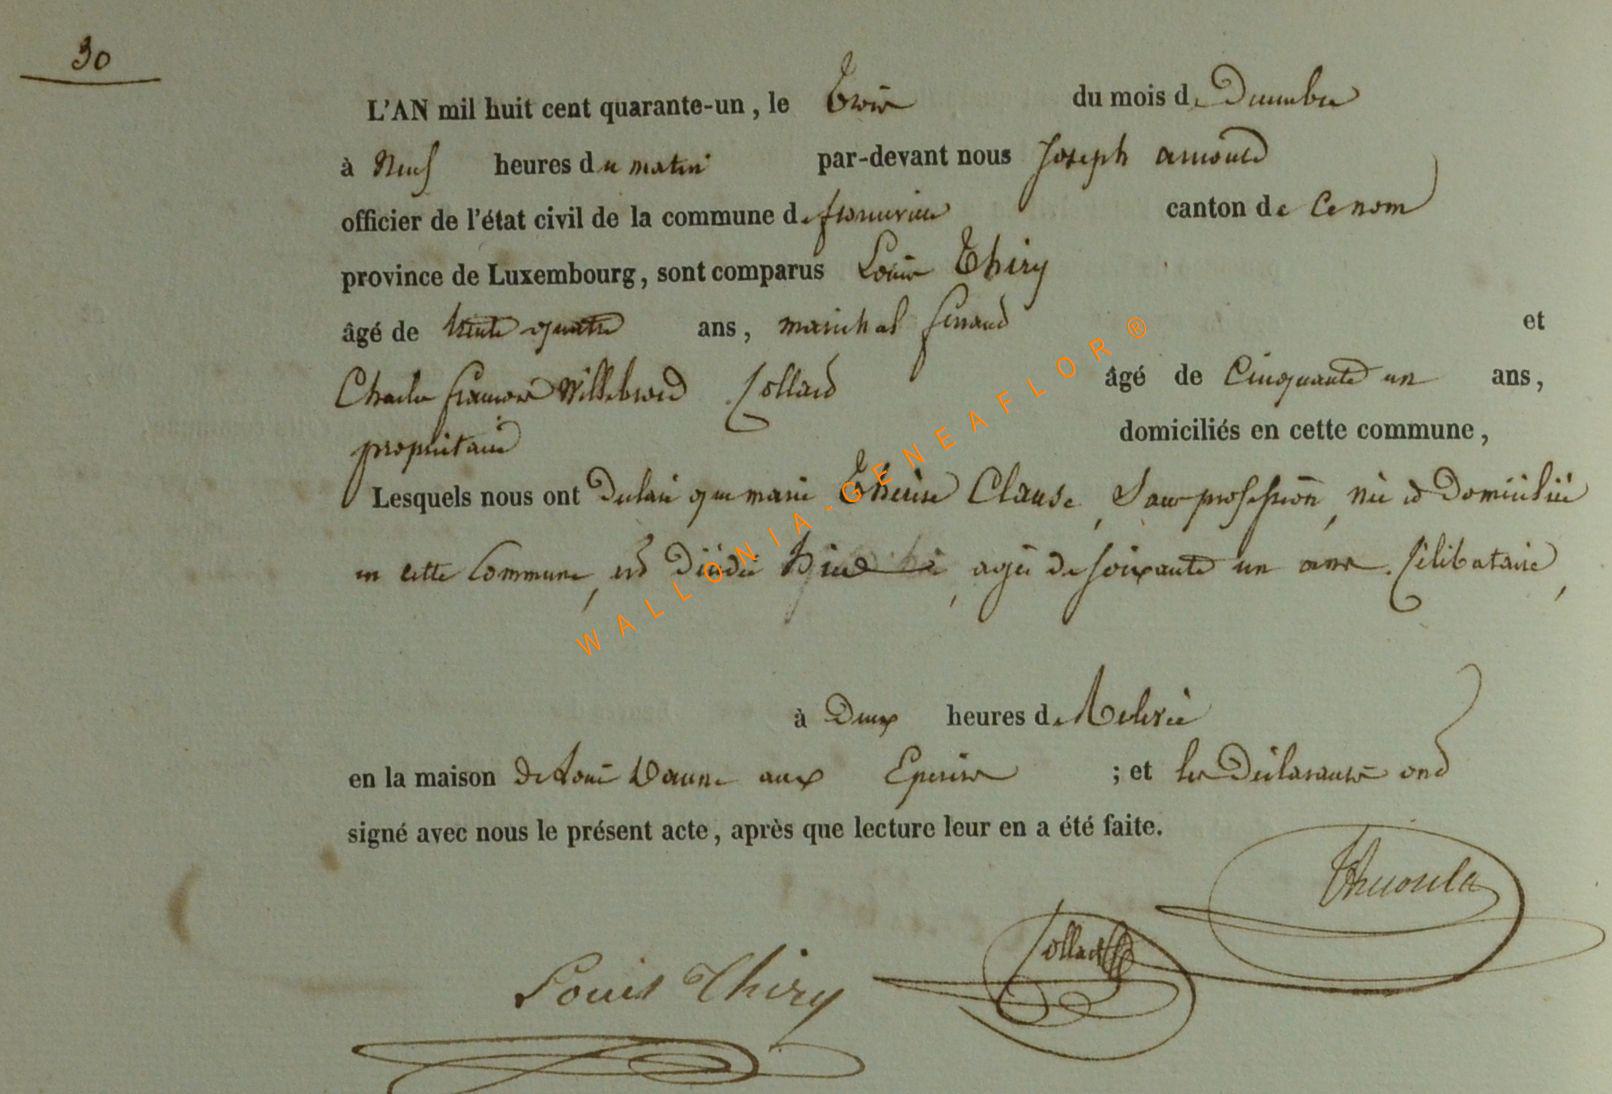 30
L'AN mil huit cent quarante-un, le Trois du mois de Decembre
à Neuf heures du matin par-devant nous Joseph Arnould
officier de l'état civil de la commune de florenville canton de Ce nom
province de Luxembourg, sont comparus Louis Thiry
âgé de trente quatre ans, marichal ferrand et
Charles francois Willebrord Collard âgé de Cinquante un ans,
propriétaire domiciliés en cette commune,
Lesquels nous ont Declaré que marie Thérèse Clause, Sans profession, née et Domiciliée
en cette Commune, est Décédée hier, agée de soixante un ans. Célibataire,
à Deux heures de Relevée
en la maison de Louis aux Epioux ; et les Déclarants ont
signé avec nous le présent acte, après que lecture leur en a été faite.
Collard
Louis Thiry
WALLONIA-GENEAFLOR®